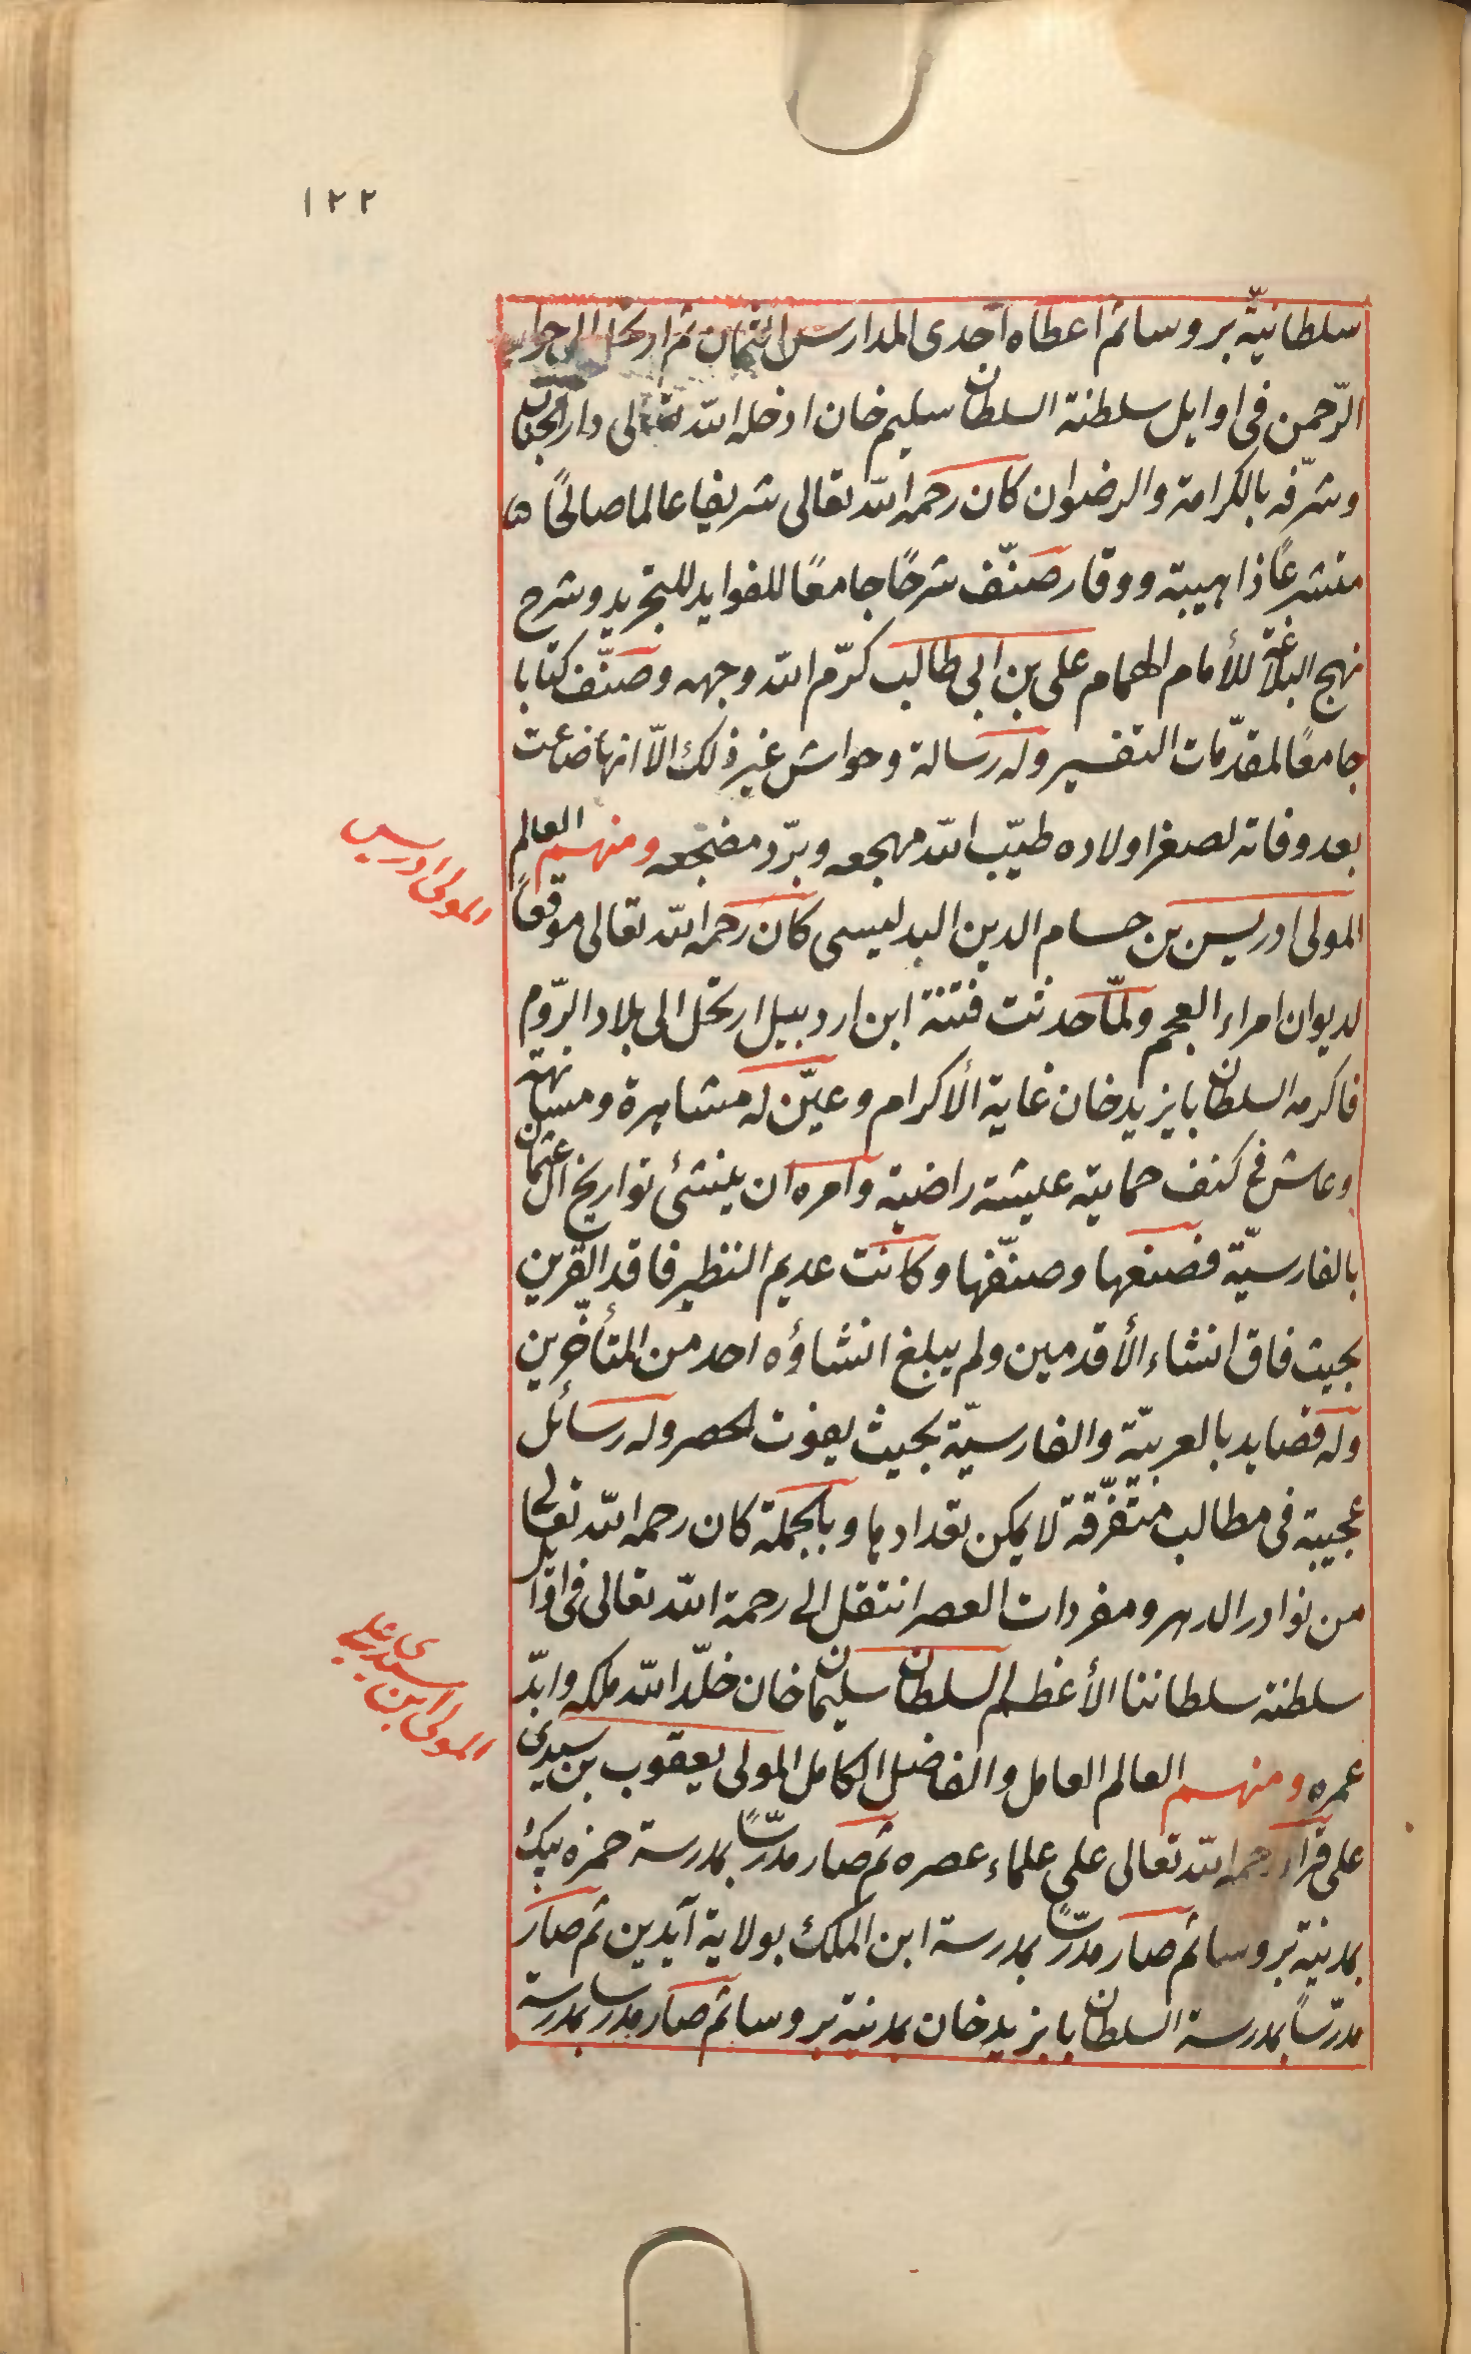 ١٢٢
سلطانيّة بروسا ثم اعطاه احدى المدارس الثمان ثم ارتحل الى جوار
الرّحمن فى اوايل سلطنة السلطان سليم خان ادخله الله تعالى دار الجنان
وشرّفه بالكرامة والرضوان كان رحمه الله تعالى شريفا عالما صالحًا
متشرعًا ذا هيبة ووقار صنّف شرحًا جامعًا للفوايد للتجريد وشرح
نهج البلاغة للأمام الهمام على بن ابى طالب كرّم الله وجهه وصنّف كتابا
جامعًا لمقدّمات التفسير وله رسالة وحواش غير ذلك الّا انها ضاعت
بعد وفاته لصغر اولاده طيّب الله مهجعه وبرّد مضجعه ومنهم العالم
المولى ادريس
المولى ادريس بن حسام الدين البدليسى كان رحمه الله تعالى موقعًا
لديوان امراء العجم ولمّا حدثت فتنة ابن اردبيل ارتحل الى بلاد الرّوم
فاكرمه السلطان بايزيد خان غاية الأكرام وعيّن له مشاهرة ومسانهة
وعاش فى كنف حمايته عيشة راضية وامره ان ينشئ تواريخ آل عثمان
بالفارسيّة فصنعها وصنّفها وكانت عديم النظير فاقد القرين
بحيث فاق انشاء الأقدمين ولم يبلغ انشاؤه احد من المتأخّرين
وله قصايد بالعربيّة والفارسيّة بحيث يفوت الحصر وله رسائل
عجيبة فى مطالب متفرّقة لا يمكن تعدادها وبالجملة كان رحمه الله تعالى
من نوادر الدهر ومفردات العصر انتقل الى رحمة الله تعالى فى اوايل
سلطنة سلطاننا الأعظم السلطان سليمان خان خلّد الله ملكه وابّد
المولى ابن سيدى على
عمره ومنهم العالم العامل والفاضل الكامل المولى يعقوب بن سيدى
على قرأ رحمه الله تعالى على علماء عصره ثم صار مدرّسًا بمدرسة حمزه بيك
بمدينة بروسا ثم صار مدرّسًا بمدرسة ابن الملك بولاية آيدين ثم صار
مدرّسًا بمدرسة السلطان بايزيد خان بمدينة بروسا ثم صار مدرسا بمدرسة